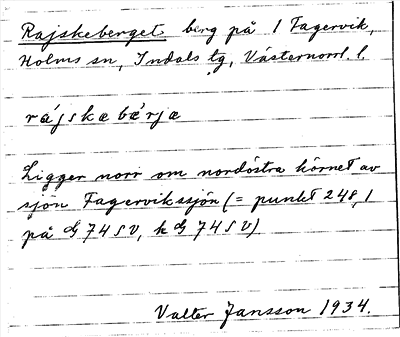 Rajskeberget berg på 1 Fagervik,
Holms sn, Indals tg, Västernorrl. l.
rájskæ bæ̀rjæ
Ligger norr om nordöstra hörnet av
sjön Fagervikssjön (= punkt 248,1
på G 74 SV, k G 74 SV)
Valter Jansson 1934.